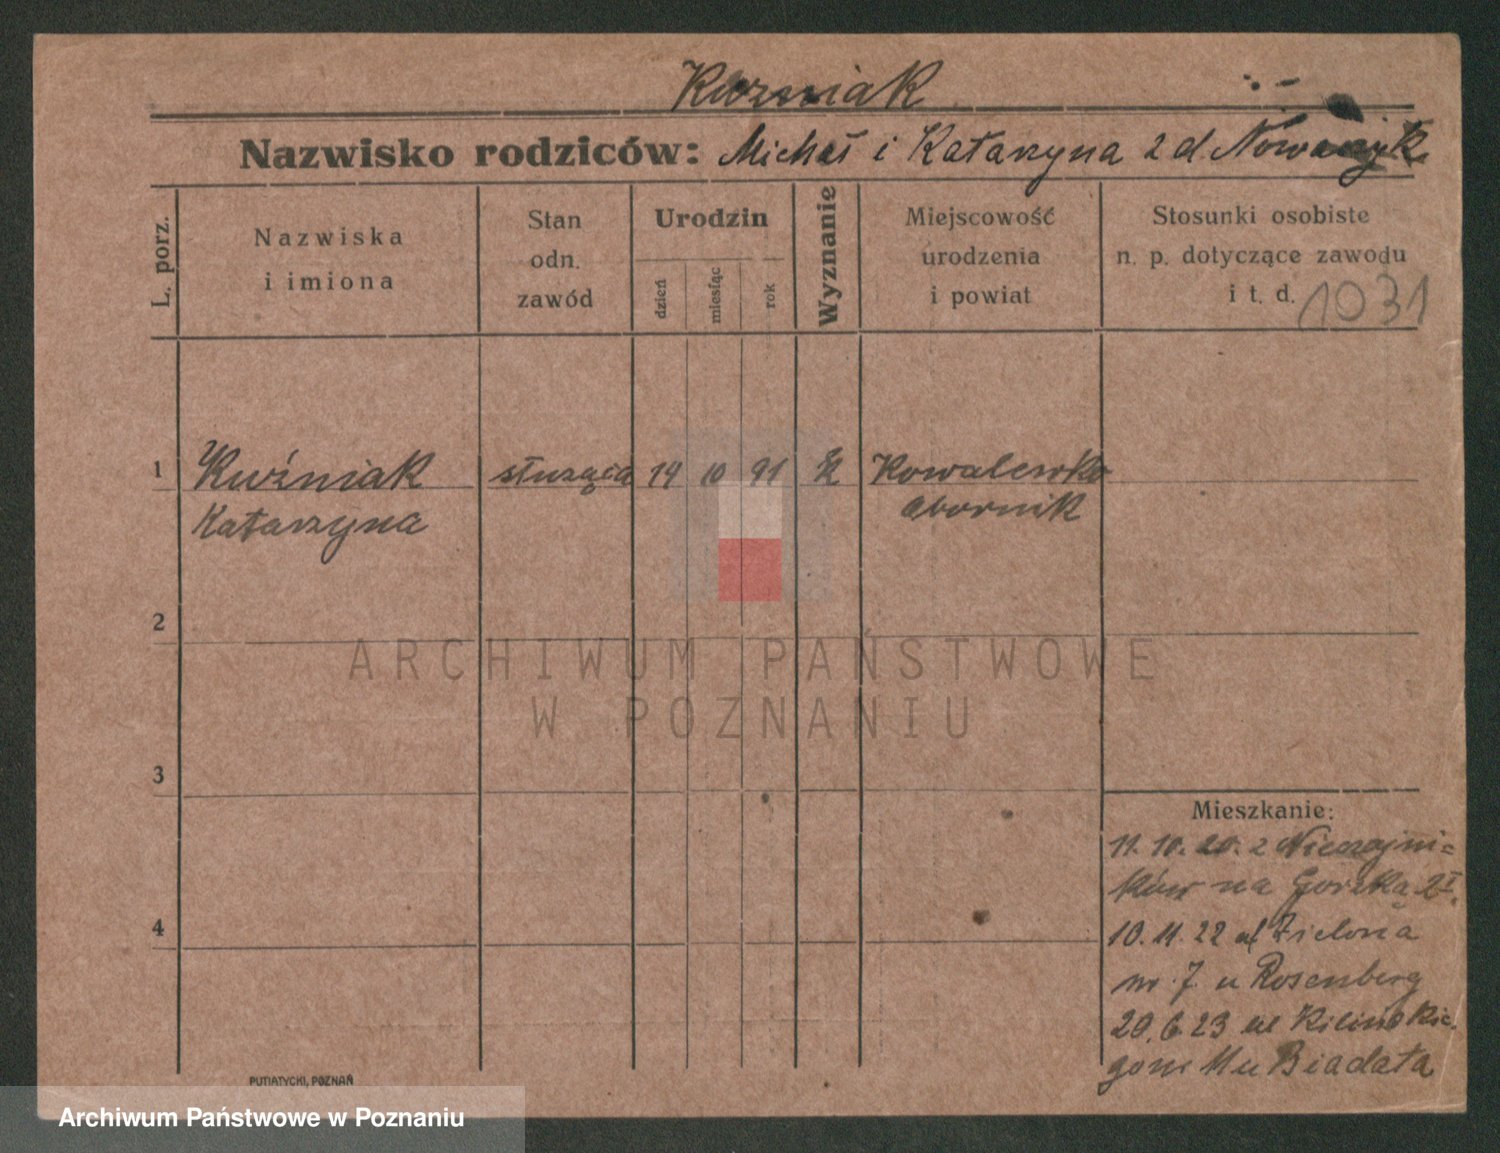 Kuźniak
Nazwisko rodziców: Michał i Katarzyna z d Nowaczyk
L. porz.
Nazwiska
i imiona
Stan
odn.
zawód
Urodzin
dzień
miesiąc
rok
Wyznanie
Miejscowość
urodzenia
i powiat
Stosunki osobiste
n. p. dotyczące zawodu
i t. d. 1031
1 Kuźniak służąca 14 10 91 K Kowalewko
Katarzyna Obornik
2
ARCHIWUM PAŃSTWOWE
W POZNANIU
3
Mieszkanie:
11.10.20. z
na 2 I.
4
10.11.22 ul Zielona
nr. 7 u Rosenberg
20.6.23 ul Kilińskie-
go nr u Biadała
PUTIATYCKI, POZNAŃ
Archiwum Państwowe w Poznaniu